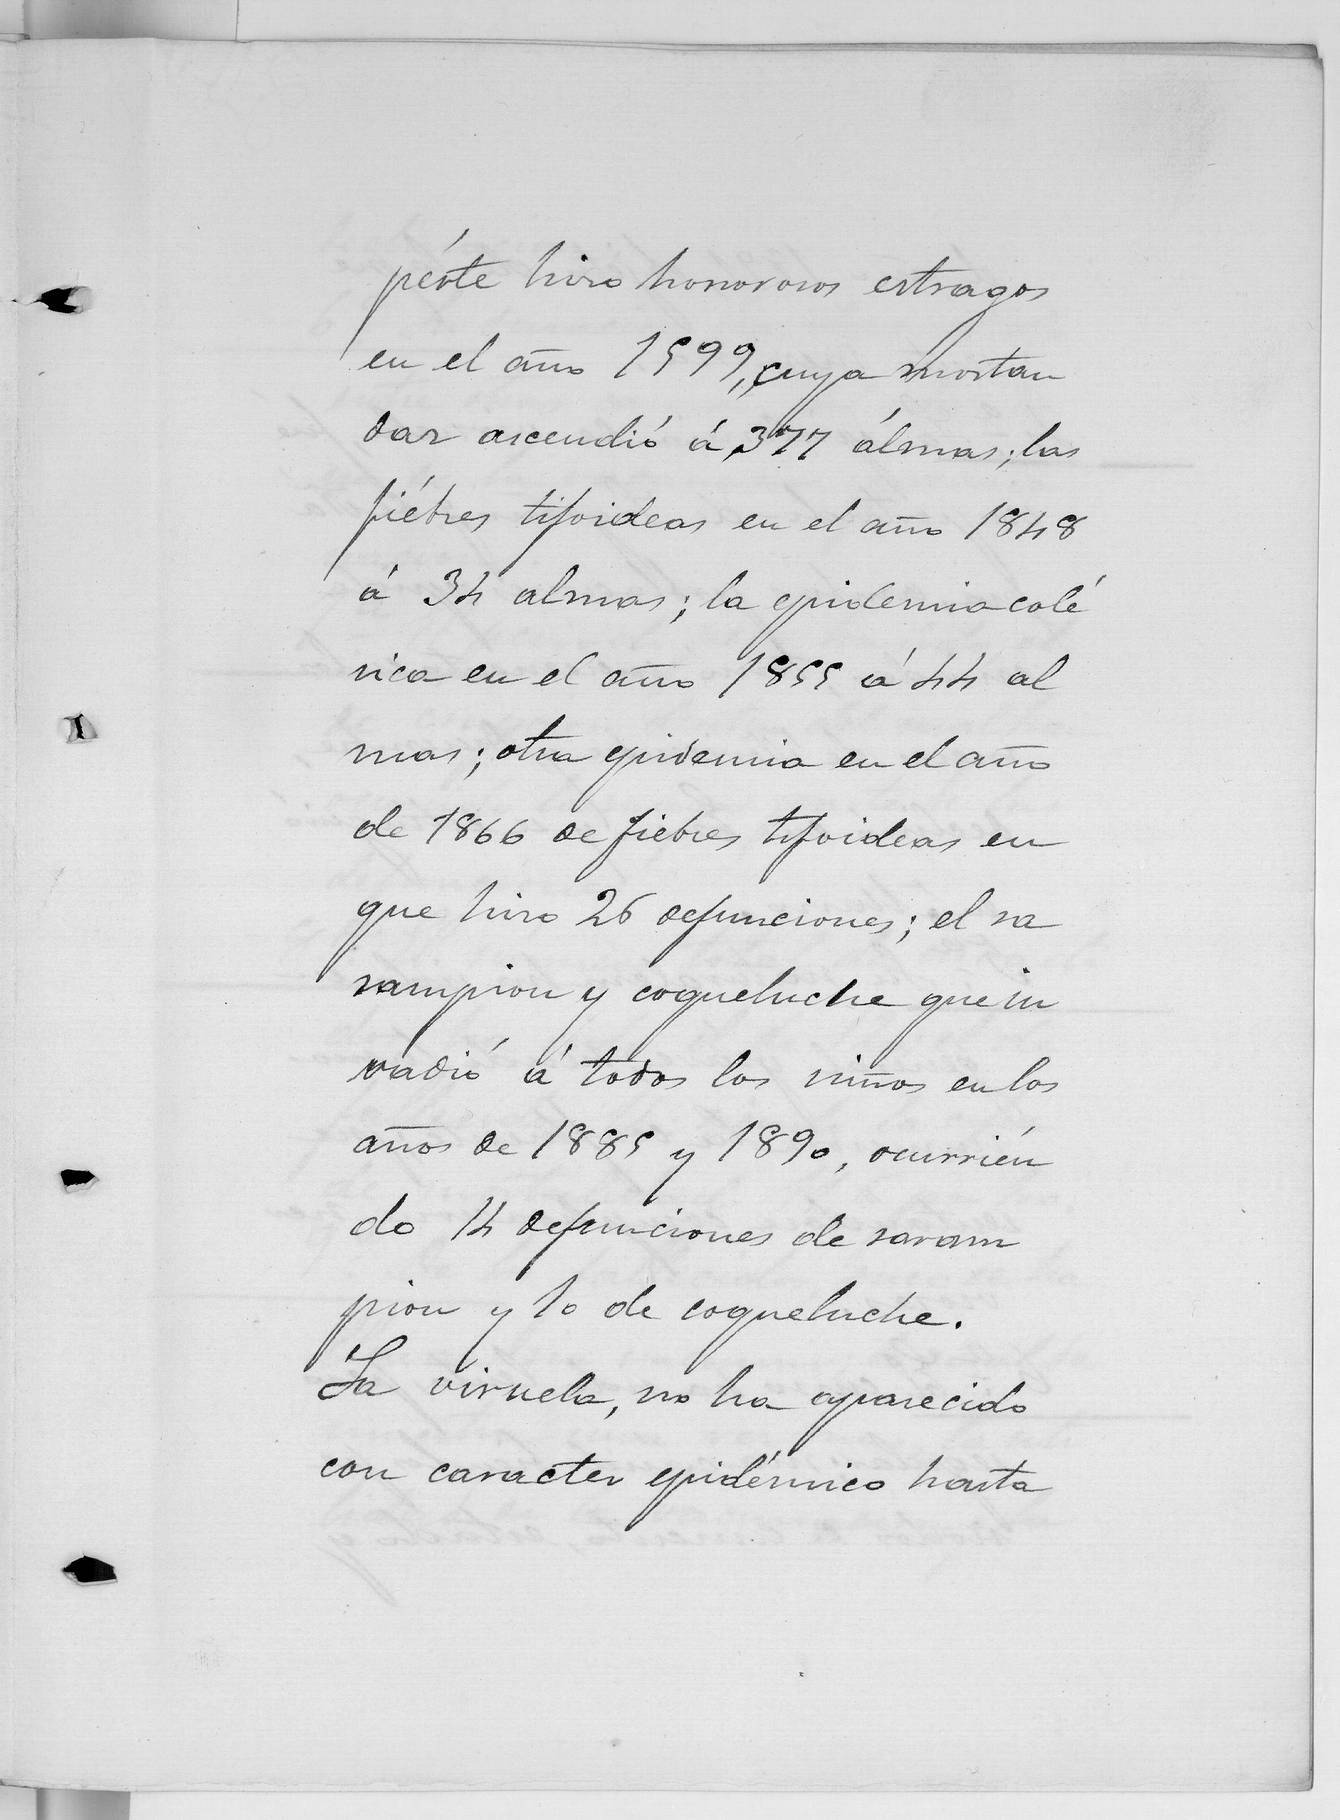 péste hizo horrorosos estragos
en el año 1599, cuya mortan
dar ascendió á 377 álmas; las
fiébres tifoideas en el año 1848
á 34 almas; la epidemia colé
rica en el año 1855 á 44 al
mas; otra epidemia en el año
de 1866 de fiebres tifoideas en
que hizo 26 defunciones; el sa
rampion y coqueluche que in
vadió á todos los niños en los
años de 1885 y 1890, ocurrién
do 14 defunciones de saram
pion y 10 de coqueluche.
La viruela, no ha aparecido
con caracter epidémico hasta